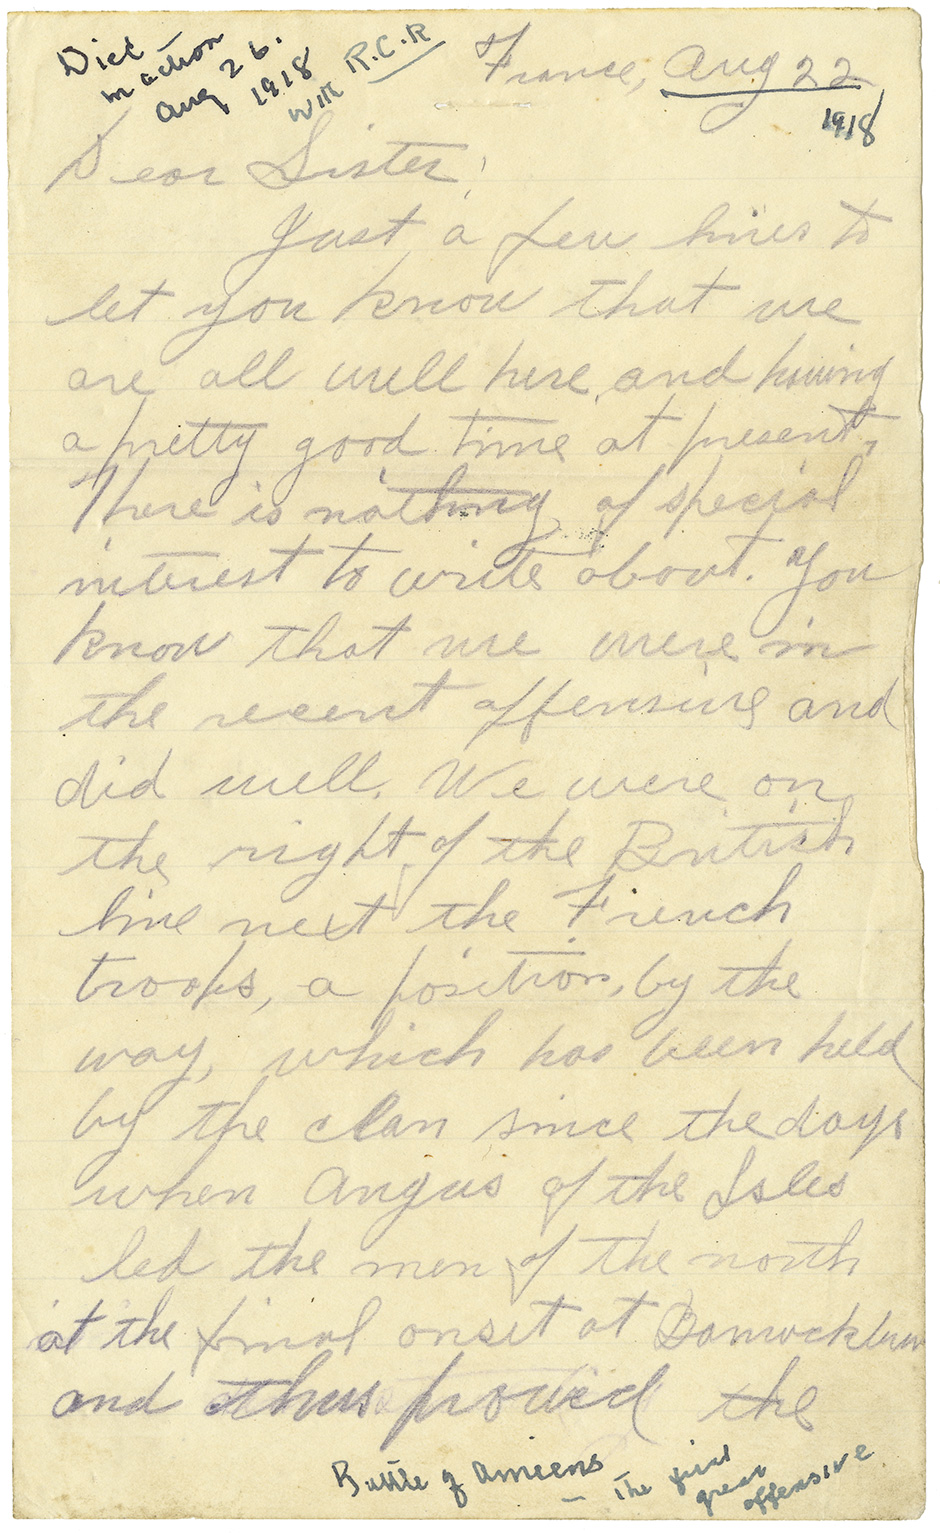 Died
in action
Aug 26.
1918
with R.C.R
France, Aug 22
1918
Dear Sister,
Just a few lines to
let you know that we
are all well here, and having
a pretty good time at present,
There is nothing of special
interest to write about. You
know that we were in
the recent offensive and
did well. We were on
the right of the British
line next the French
troops, a position, by the
way, which has been held
by the clan since the days
when Angus of the Isles
led the men of the north
at the final onset at Bannockburn
and thus proved the
Battle of Amiens
— The first
great
offensive.